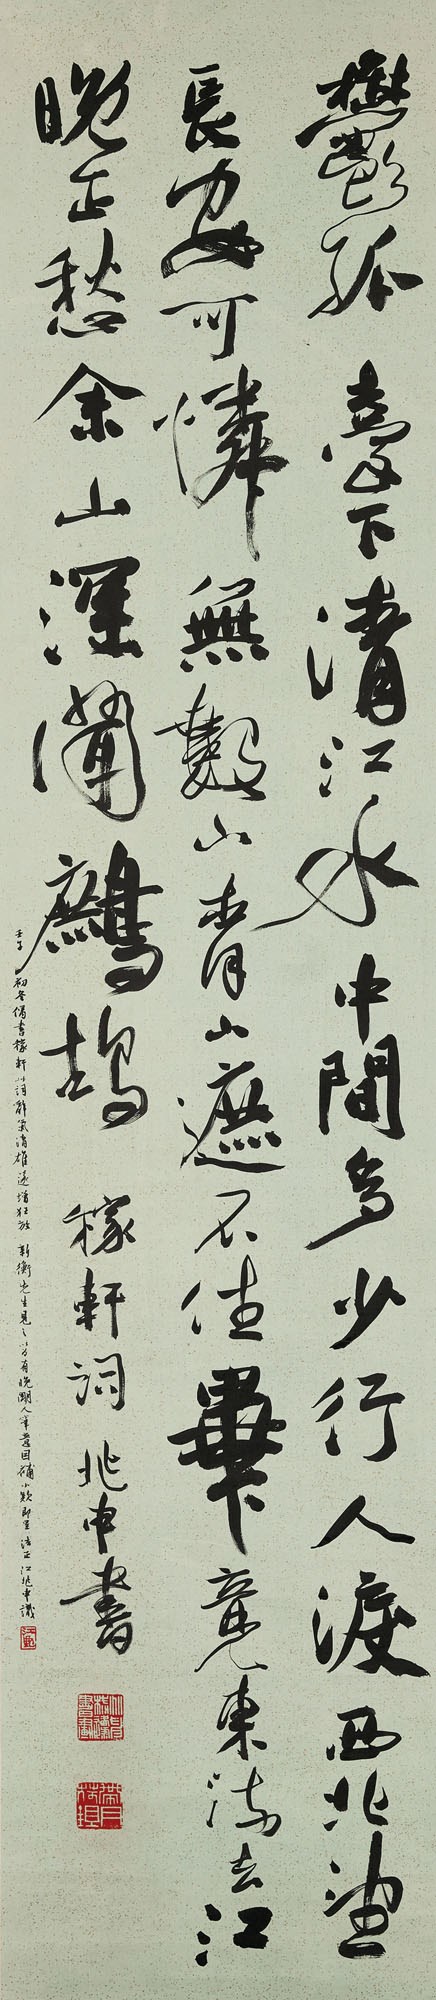 鬱孤臺下清江水中間多少行人淚西北望
長安可憐無數山青山遮不住畢竟東流去江
晚正愁余山深聞鷓鴣
稼軒詞 兆申書
壬子初冬偶書稼軒小詞辭氣清雄遂增狂放 新衡先生見之以為有晚明人筆意因補小款即呈法正 江兆申識